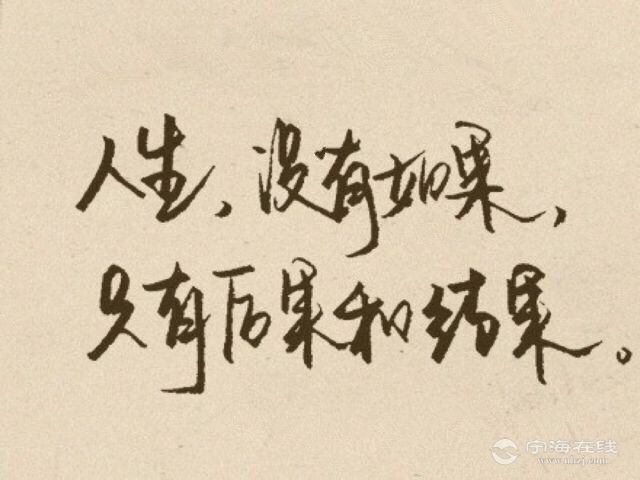 人生，没有如果，
只有后果和结果。
宁海在线
www.nhzj.com